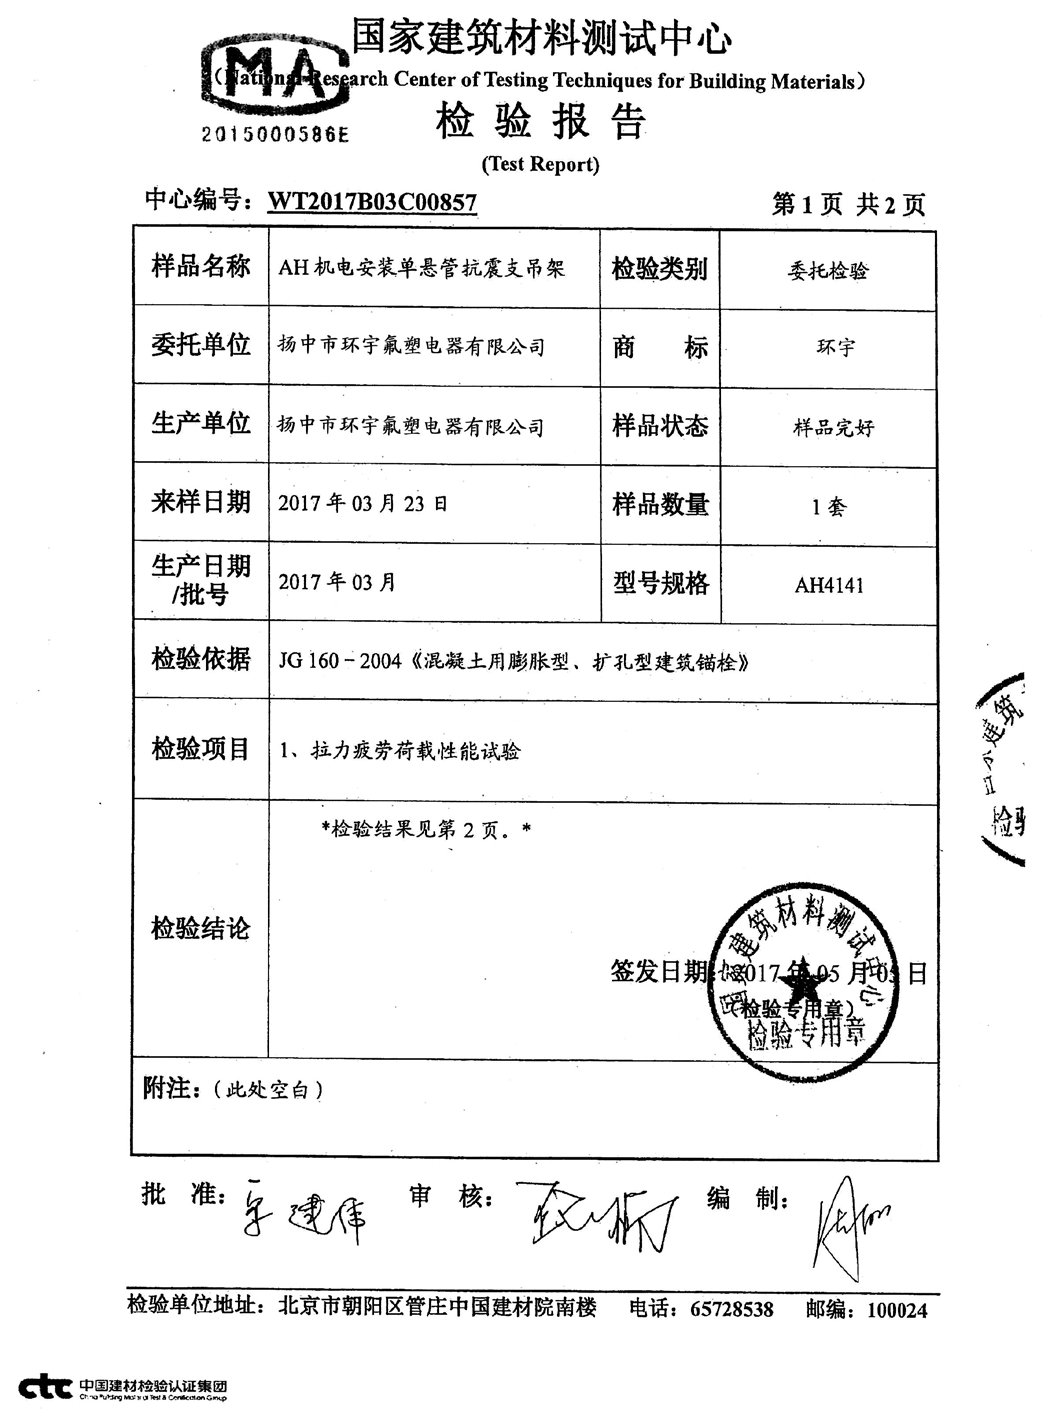 国家建筑材料测试中心
MA
（National Research Center of Testing Techniques for Building Materials）
2015000586E
检 验 报 告
(Test Report)
中心编号：WT2017B03C00857
第 1 页 共 2 页
样品名称 AH 机电安装单悬管抗震支吊架 检验类别 委托检验
委托单位 扬中市环宇氟塑电器有限公司 商 标 环宇
生产单位 扬中市环宇氟塑电器有限公司 样品状态 样品完好
来样日期 2017 年 03 月 23 日 样品数量 1 套
生产日期
/批号 2017 年 03 月 型号规格 AH4141
检验依据 JG 160－2004《混凝土用膨胀型、扩孔型建筑锚栓》
检验项目 1、拉力疲劳荷载性能试验
*检验结果见第 2 页。*
检验结论
国家建筑材料测试中心
签发日期：2017 年 05 月 05 日
（检验专用章）
检验专用章
建筑
检验
附注：（此处空白）
批 准： 审 核： 编 制：
检验单位地址：北京市朝阳区管庄中国建材院南楼 电话：65728538 邮编：100024
ctc 中国建材检验认证集团
China Building Material Test & Certification Group